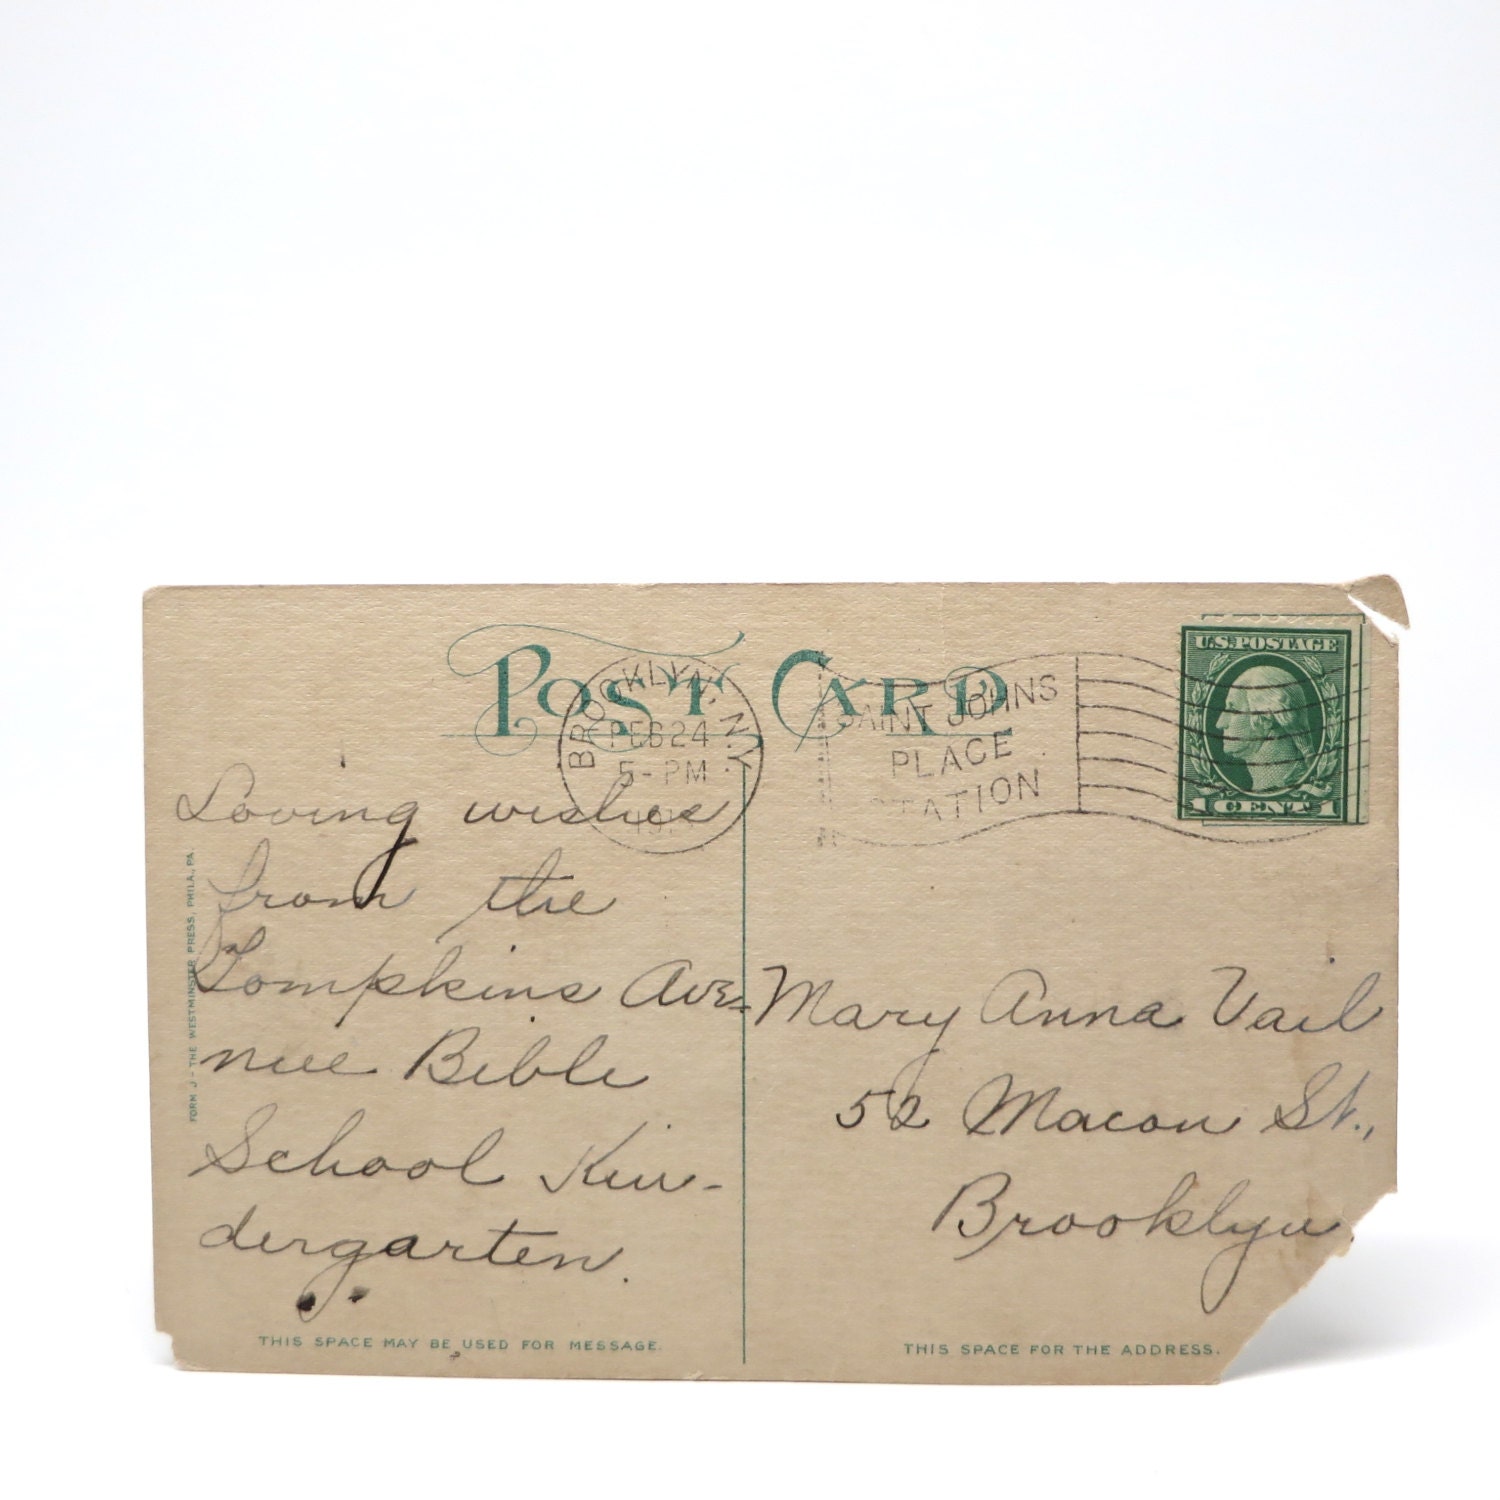 POST CARD
BROOKLYN, N.Y.
FEB 24
5 - PM
SAINT JOHNS
PLACE
STATION
U.S. POSTAGE
1 CENT 1
Loving wishes
from the
Tompkins Ave=
nue Bible
School Kin-
dergarten.
Mary Anna Vail
52 Macon St.,
Brooklyn.
FORM J - THE WESTMINSTER PRESS, PHILA., PA.
THIS SPACE MAY BE USED FOR MESSAGE.
THIS SPACE FOR THE ADDRESS.